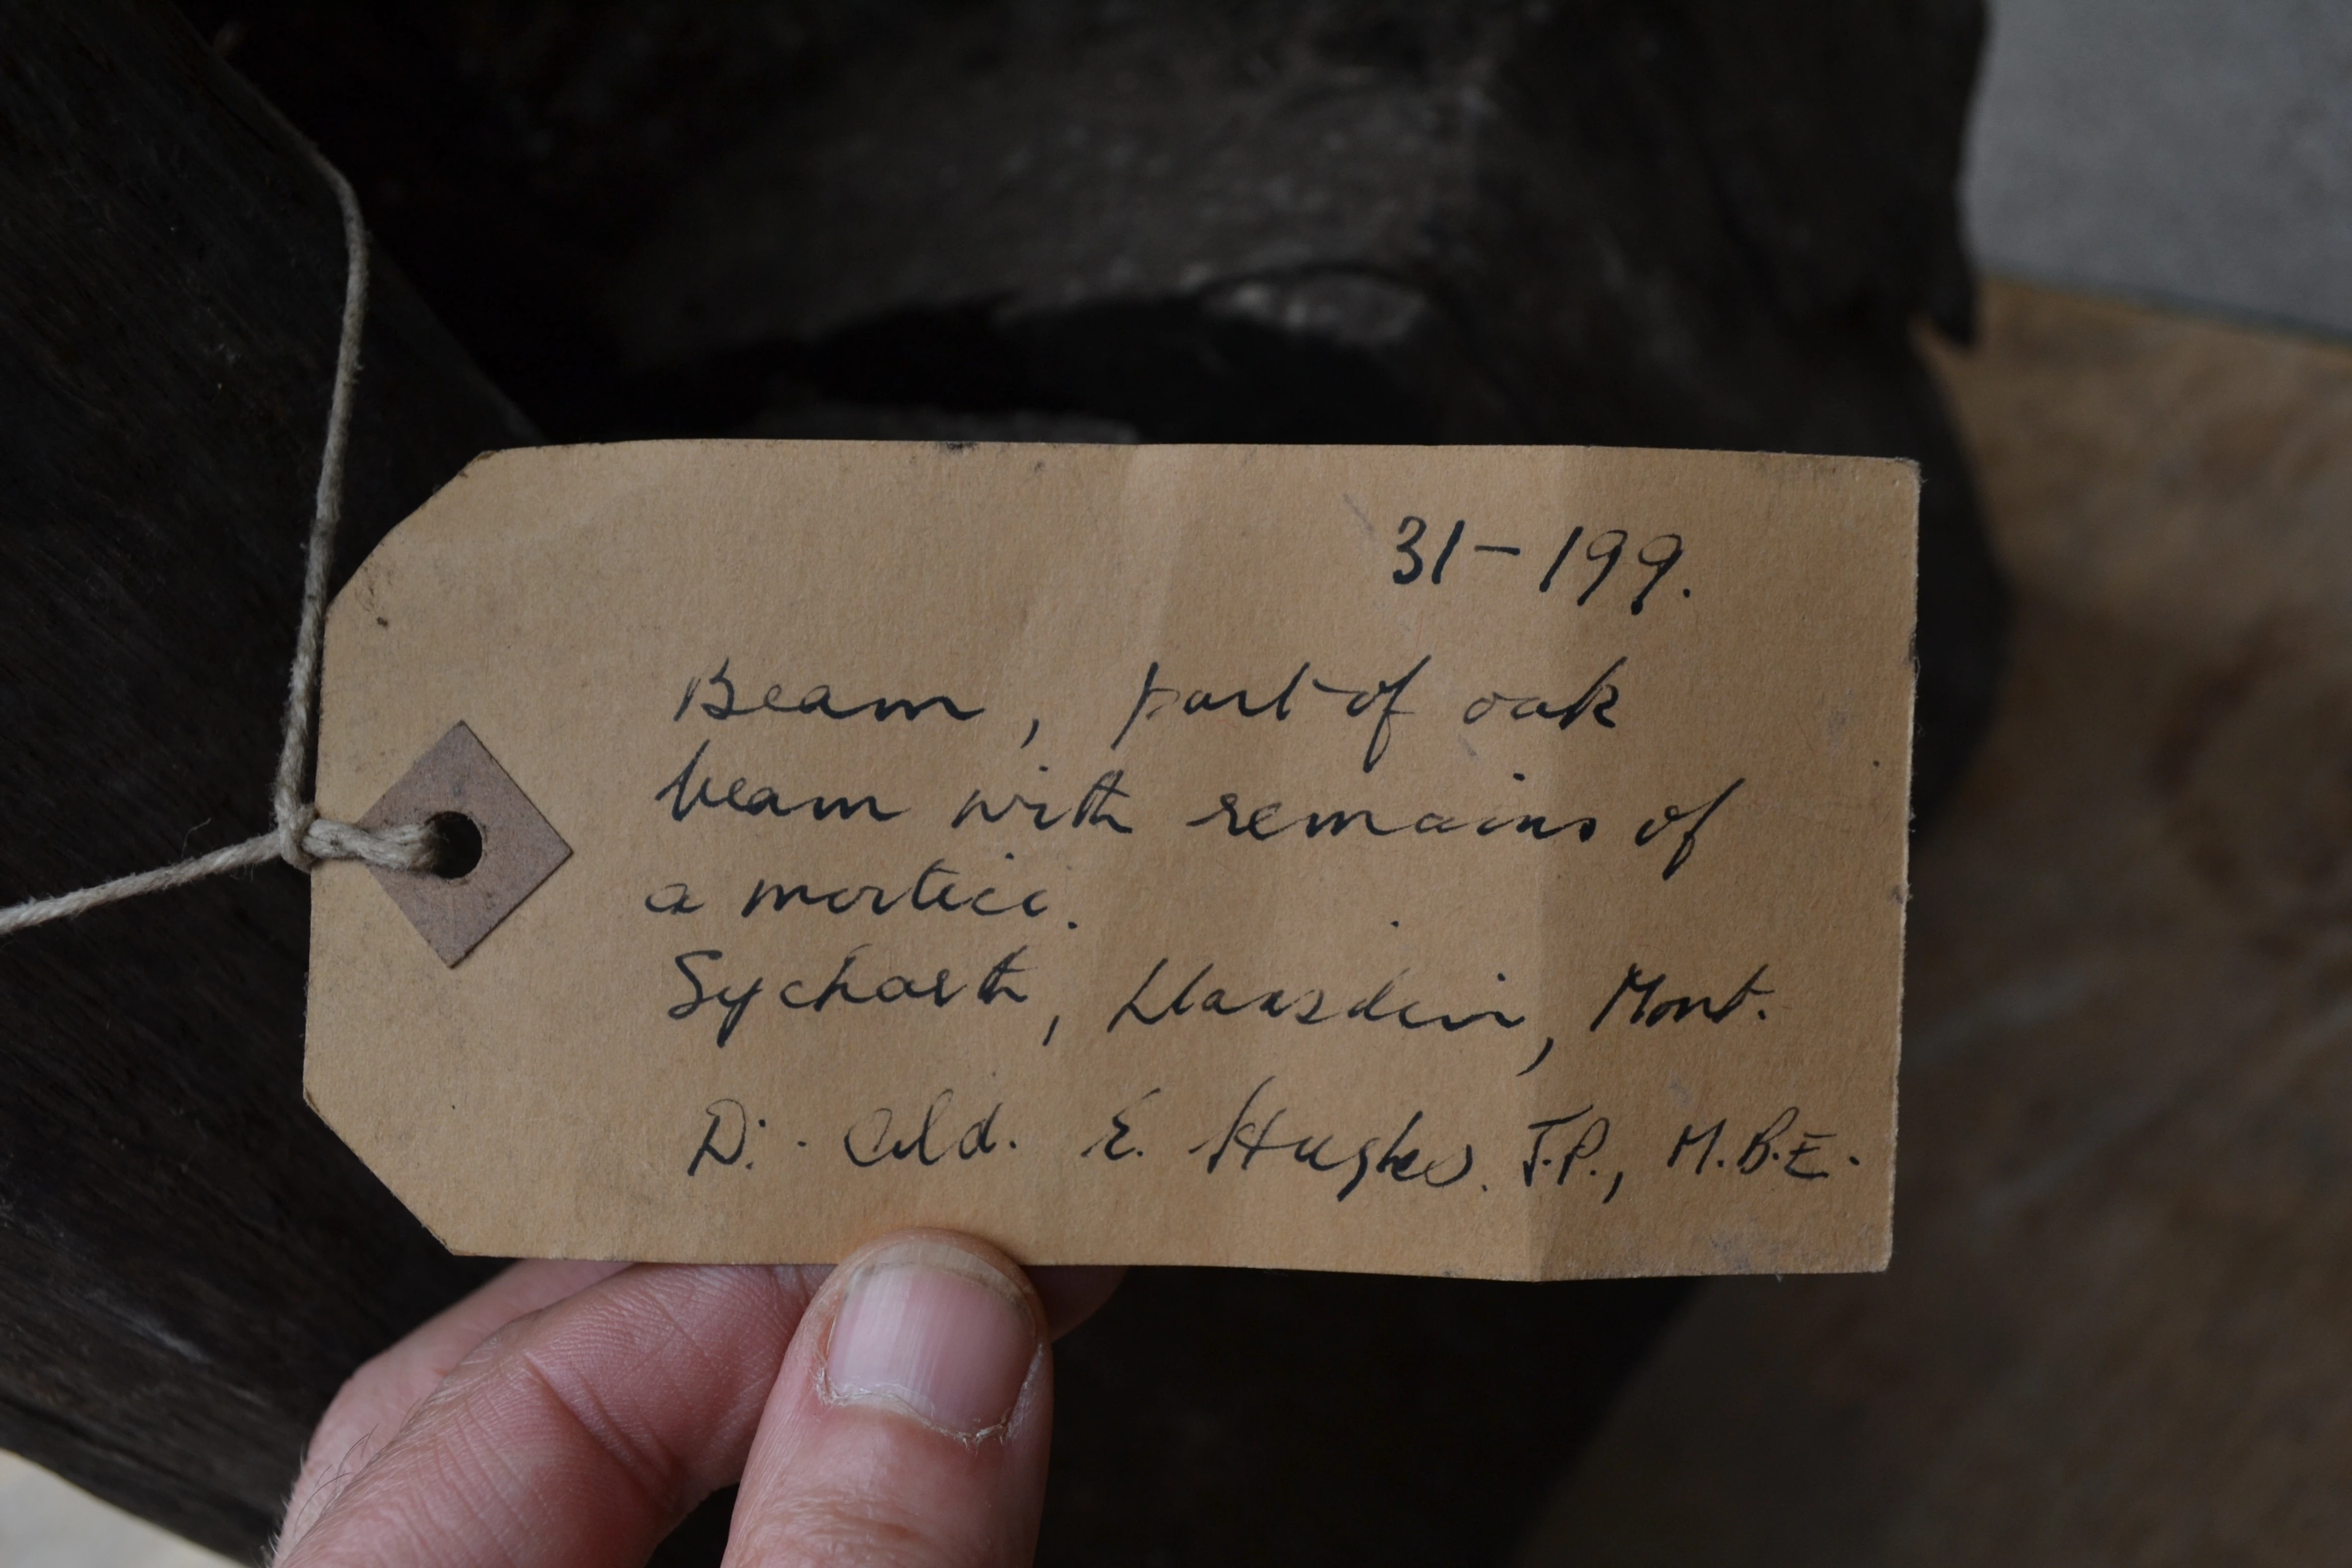 31-199.
Beam, part of oak
beam with remains of
a mortice.
Sycharth, Llansilin, Mont.
D:- Ald. E. Hughes. J.P., M.B.E.